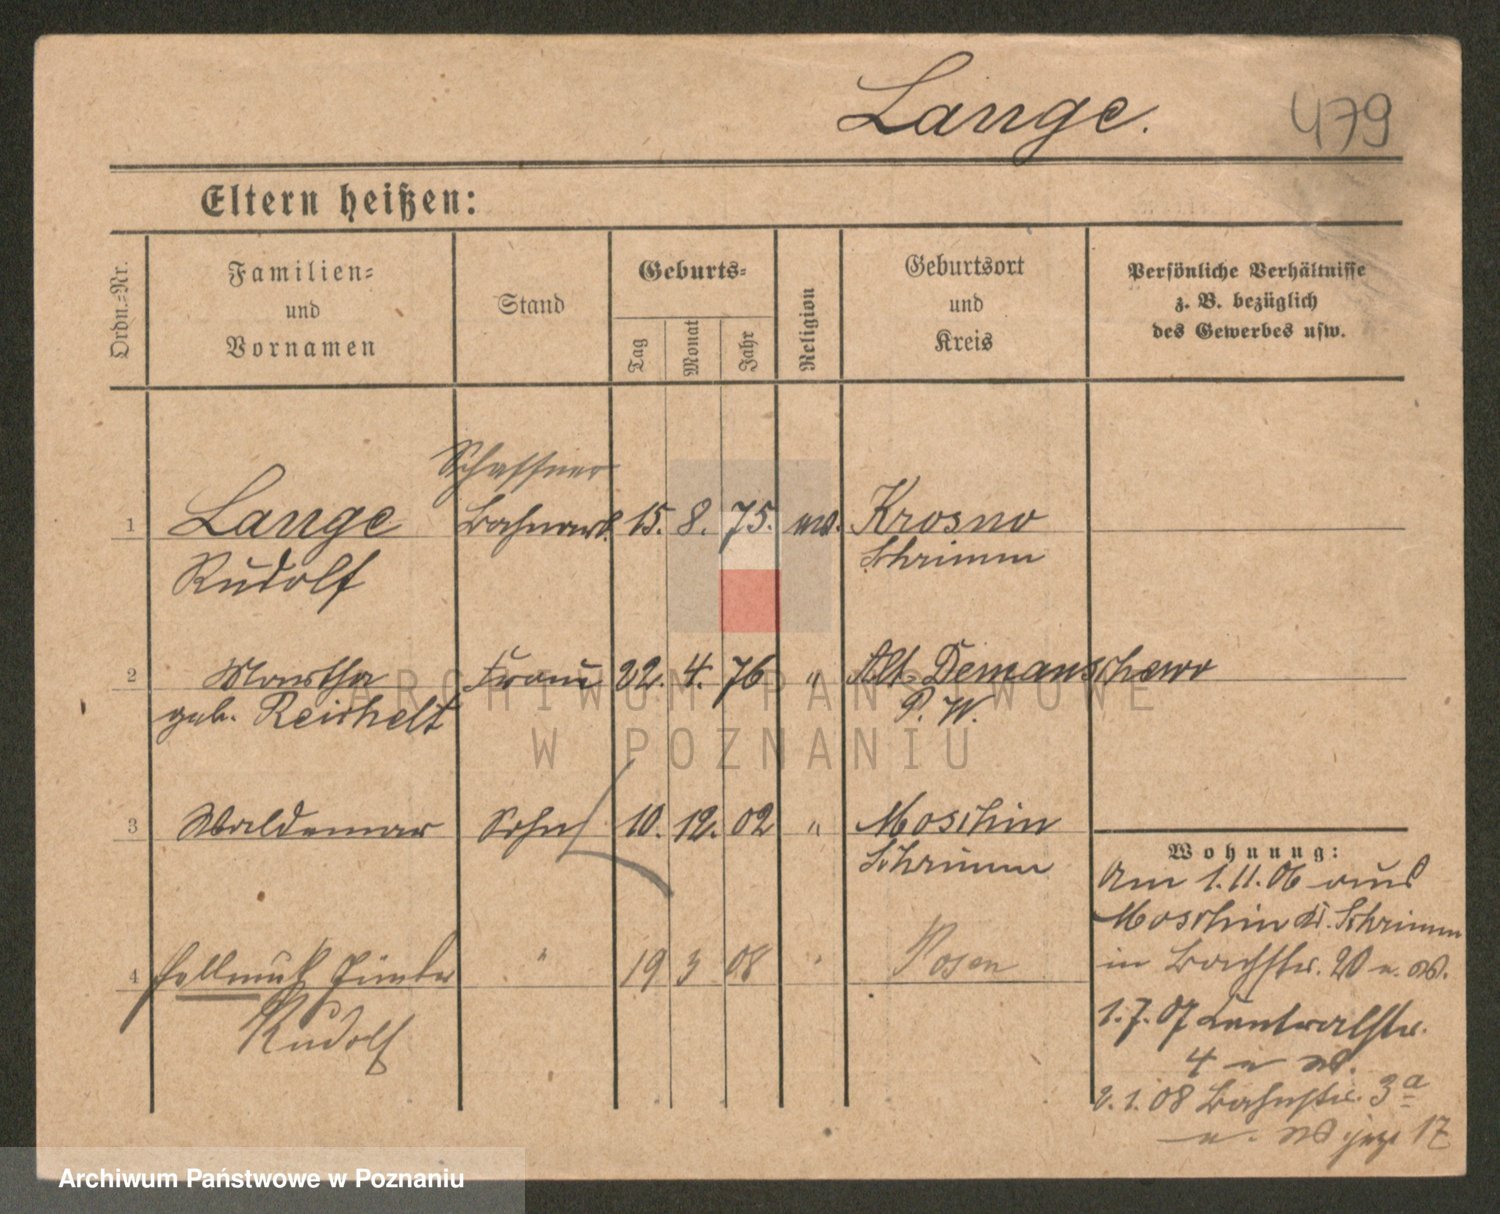 Lange. 479
Eltern heißen:
Ordn.=Nr.
Familien=
und
Vornamen
Stand
Geburts=
Tag
Monat
Jahr
Religion
Geburtsort
und
Kreis
Persönliche Verhältnisse
z. B. bezüglich
des Gewerbes usw.
Schaffner
1 Lange Bahnarb. 15. 8. 75. ev. Krosno
Rudolf Schrimm
2 Martha Frau 22. 4. 76 " Alt-Demanschewo
geb. Reichelt P. W.
3 Waldemar Sohn 10. 12. 02 " Moschin
Schrimm
4 Hellmut Günter " 19 3 08 " Posen
Rudolf
Wohnung:
Am 1.11.06 aus
Moschin Kr. Schrimm
in Bachstr. 20
1.7.07 Centralstr.
4
2.1.08 Bahnstr. 3a
jezt 17
ARCHIWUM PAŃSTWOWE
W POZNANIU
Archiwum Państwowe w Poznaniu